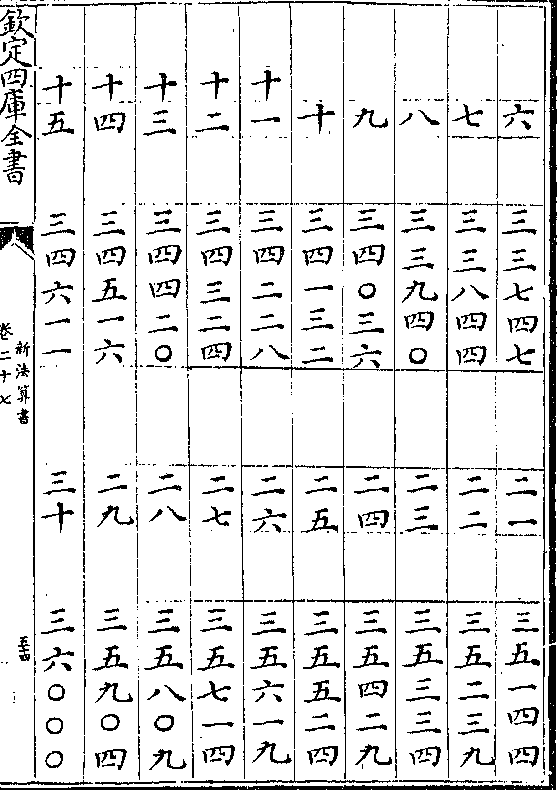 六 三三七四七 二一 三五一四四
七 三三八四四 二二 三五二三九
八 三三九四〇 二三 三五三三四
九 三四〇三六 二四 三五四二九
十 三四一三二 二五 三五五二四
十一 三四二二八 二六 三五六一九
十二 三四三二四 二七 三五七一四
十三 三四四二〇 二八 三五八〇九
十四 三四五一六 二九 三五九〇四
十五 三四六一一 三十 三六〇〇〇
欽定四庫全書
新法算書
卷二十七
五十四